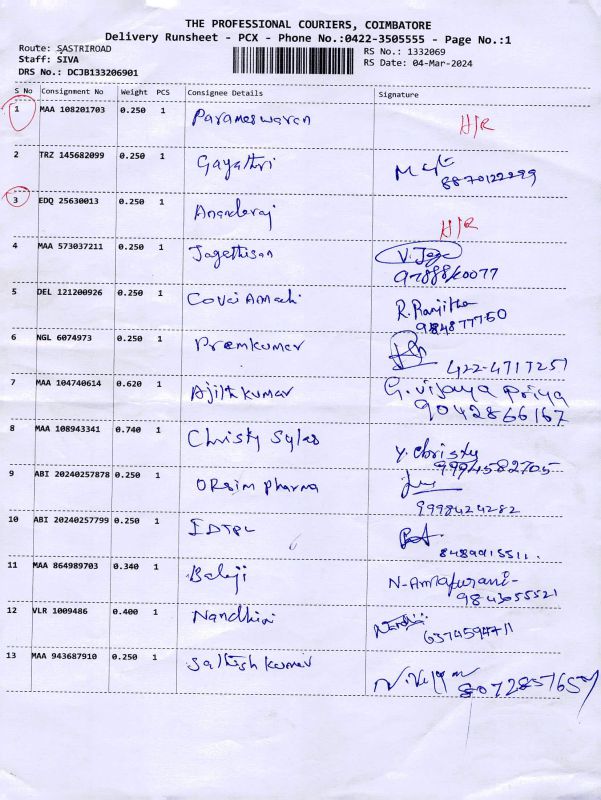 THE PROFESSIONAL COURIERS, COIMBATORE
Delivery Runsheet - PCX - Phone No.:0422-3505555 - Page No.:1
Route: SASTRIROAD
Staff: SIVA
DRS No.: DCJB133206901
RS No.: 1332069
RS Date: 04-Mar-2024
S No Consignment No Weight PCS Consignee Details Signature
1 MAA 108201703 0.250 1 Parameswaran H/R
2 TRZ 145682099 0.250 1 Gayathri
8870122299
3 EDQ 25630013 0.250 1 Anandaraj H/R
4 MAA 573037211 0.250 1 Jagethisan V. Jega
5 DEL 121200926 0.250 1 Covai Amali R. Ranjitha
9884877750
6 NGL 6074973 0.250 1 Premkumar
422-4717251
7 MAA 104740614 0.620 1 Ajith kumar G. vijaya priya
9042866167
8 MAA 108943341 0.740 1 Christy Sylas Y. christy
9994582705
9 ABI 20240257878 0.250 1 ORsim pharma
9998424282
10 ABI 20240257799 0.250 1 IDTPL
8489915511.
11 MAA 864989703 0.340 1 Balaji
9843055521
12 VLR 1009486 0.400 1 Nandhini
6374594711
13 MAA 943687910 0.250 1 Sathish kumar
8072857657